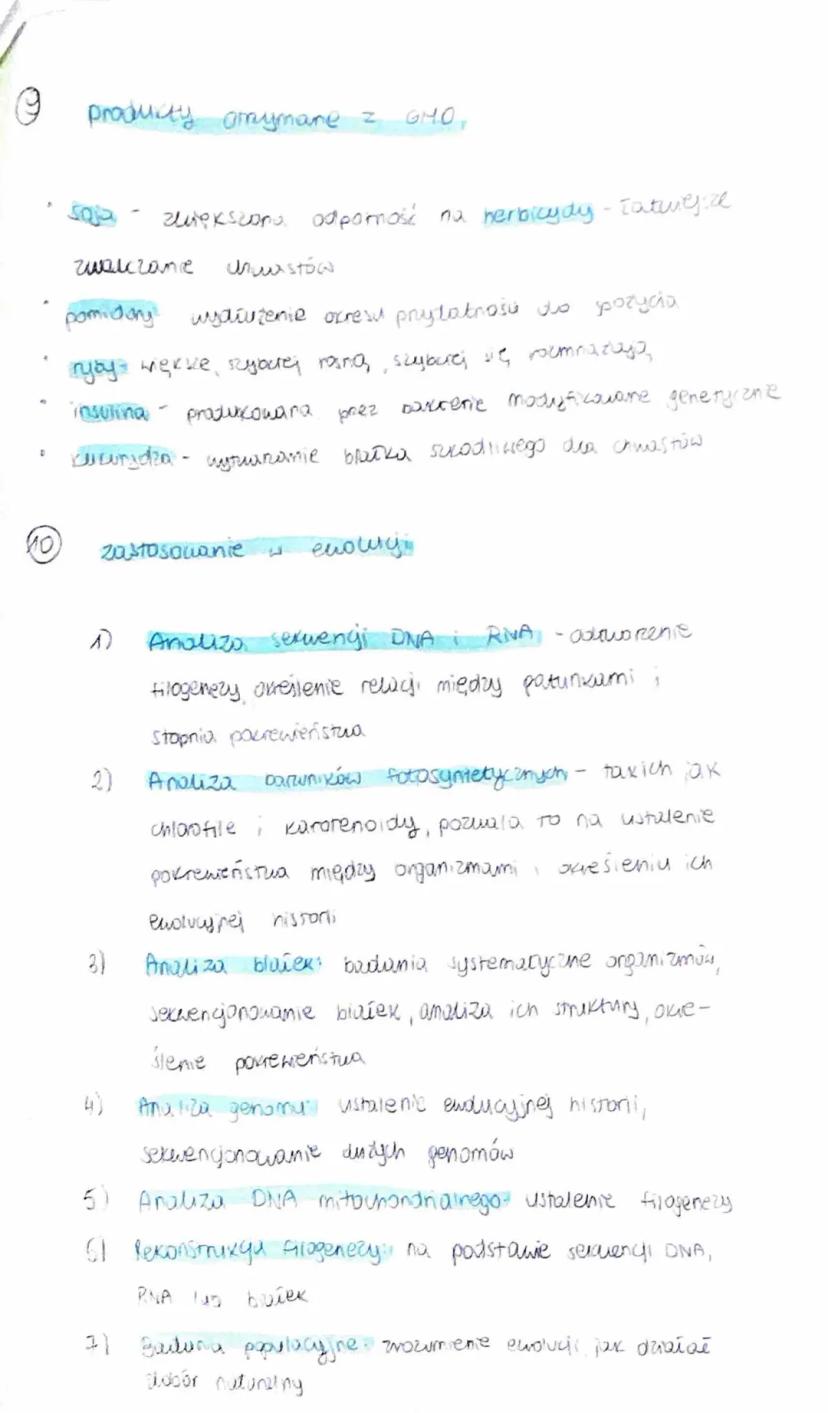 ⑨ produkty otrzymane z GMO
• soja - zwiększona odporność na herbicydy - łatwiejsze
zwalczanie chwastów
• pomidory wydłużenie okresu przydatności do spożycia
• ryby - większe, szybciej rosną, szybciej się rozmnażają
• insulina - produkowana przez bakterie modyfikowane genetycznie
• kukurydza - wytwarzanie białka szkodliwego dla chwastów
⑩ zastosowanie w ewolucji
1) Analiza sekwencji DNA i RNA - odtworzenie
filogenezy, określenie relacji między gatunkami i
stopnia pokrewieństwa
2) Analiza barwników fotosyntetycznych - takich jak
chlorofile i karotenoidy, pozwala to na ustalenie
pokrewieństwa między organizmami i określeniu ich
ewolucyjnej historii
3) Analiza białek: badania systematyczne organizmów,
sekwencjonowanie białek, analiza ich struktury, okre-
ślenie pokrewieństwa
4) Analiza genomu: ustalenie ewolucyjnej historii,
sekwencjonowanie dużych genomów
5) Analiza DNA mitochondrialnego: ustalenie filogenezy
6) Rekonstrukcja filogenezy: na podstawie sekwencji DNA,
RNA lub białek
7) Badania populacyjne: zrozumienie ewolucji, jak działał
dobór naturalny